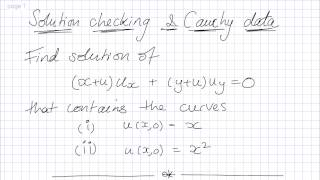 page 1
Solution checking & Cauchy data
Find solution of
(x+u)ux + (y+u)uy = 0
that contains the curves
(i) u(x,0) = x
(ii) u(x,0) = x²